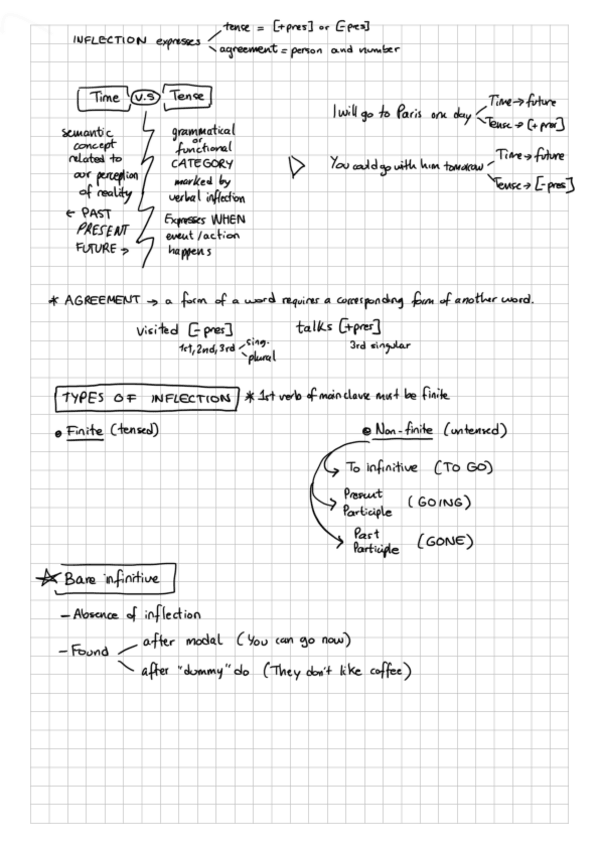 tense = [+pres] or [-pres]
INFLECTION expresses
agreement = person and number
Time V.S Tense
semantic
concept
related to
our perception
of reality
← PAST
PRESENT
FUTURE →
grammatical
or
functional
CATEGORY
marked by
verbal inflection
Expresses WHEN
event/action
happens
I will go to Paris one day
Time → future
Tense → [+pres]
You could go with him tomorrow
Time → future
Tense → [-pres]
* AGREEMENT → a form of a word requires a corresponding form of another word.
visited [-pres] talks [+pres]
1st, 2nd, 3rd sing. plural
3rd singular
TYPES OF INFLECTION * 1st verb of main clause must be finite
• Finite (tensed) • Non-finite (untensed)
To infinitive (TO GO)
Present
Participle (GOING)
Past
Participle (GONE)
☆ Bare infinitive
- Absence of inflection
- Found
after modal (You can go now)
after "dummy" do (They don't like coffee)